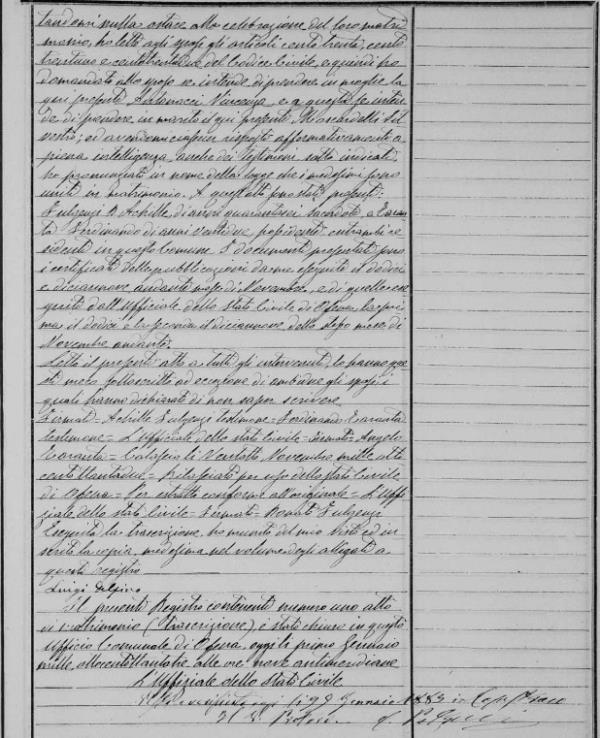 tandomi nulla ostare alla celebrazione del loro matri
monio, ho letto agli sposi gli articoli cento trenta, cento
trentuno e cento trentadue del Codice Civile, e quindi ho
domandato allo sposo se intende di prendere in moglie la
qui presente Antonacci Vincenza, e a questa se inten
de di prendere in marito il qui presente Silvestro; ed avendomi ciascun risposto affermativamente a
piena intelligenza anche dei testimoni sotto indicati,
ho pronunziato in nome della legge che i medesimi sono
uniti in matrimonio. A quest'atto sono stati presenti:
Fulgenzi Achille, di anni quarantasei sacerdote, e Caran
ta Ferdinando di anni ventidue, possidente entrambi re
sidenti in questo Comune. I documenti presentati sono
i certificati delle pubblicazioni da me eseguite il dodici
e diciannove andante mese di Novembre, e di quelle ese
guite dall'Uffiziale dello Stato Civile di Ofena, la pri
ma il dodici e la seconda il diciannove dello stesso mese di
Novembre andante.
Letto il presente atto a tutti gli intervenuti, lo hanno que
sti meco sottoscritto ad eccezione di ambidue gli sposi i
quali hanno dichiarato di non saper scrivere.
Firmati = Achille Fulgenzi testimone = Ferdinando Caranta
testimone = L'Uffiziale dello stato Civile = Firmato = Angelo
Caranta = Calascio li Ventotto Novembre mille otto
cento ottantadue = Rilasciato per uso dello Stato Civile
di Ofena = Per estratto conforme all'originale = L'Uffi
ziale dello stato Civile = Firmato = Donato Fulgenzi
Eseguita la trascrizione, ho munito del mio visto ed in
serita la copia medesima nel volume degli allegati a
questo registro
Luigi
Il presente Registro contenente numero uno atto
di matrimonio (trascrizione), è stato chiuso in questo
Ufficio Comunale di Ofena, oggi li primo Gennaio
mille ottocentottantatre alle ore nove antimeridiane
L'Uffiziale dello Stato Civile
Gennaio 1883